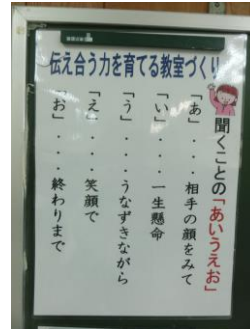 伝え合う力を育てる教室づくり
聞くことの「あいうえお」
「あ」・・・相手の顔をみて
「い」・・・一生懸命
「う」・・・うなずきながら
「え」・・・笑顔で
「お」・・・終わりまで